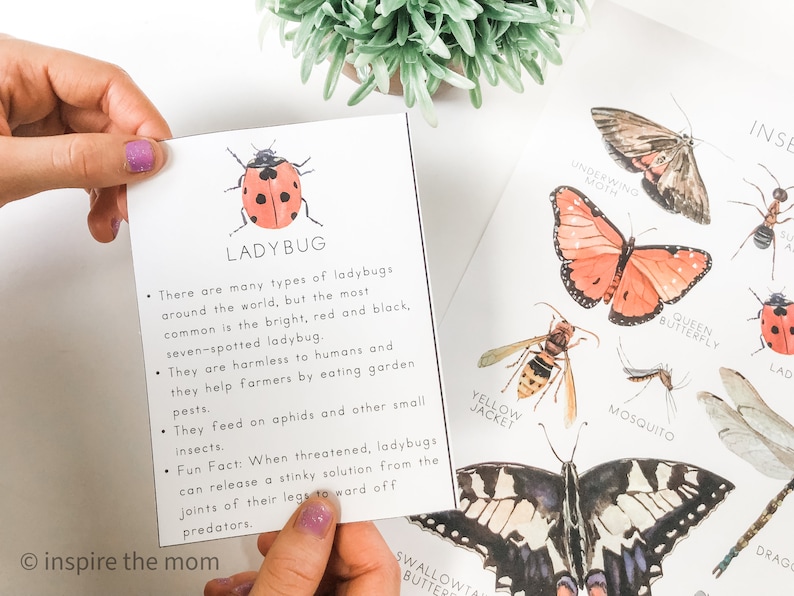 LADYBUG
• There are many types of ladybugs
around the world, but the most
common is the bright, red and black,
seven-spotted ladybug.
• They are harmless to humans and
they help farmers by eating garden
pests.
• They feed on aphids and other small
insects.
• Fun Fact: When threatened, ladybugs
can release a stinky solution from the
joints of their legs to ward off
predators.
INSE
UNDERWING
MOTH
SU
A
QUEEN
BUTTERFLY
LAD
YELLOW
JACKET
MOSQUITO
DRAGO
SWALLOWTAI
BUTTERF
© inspire the mom